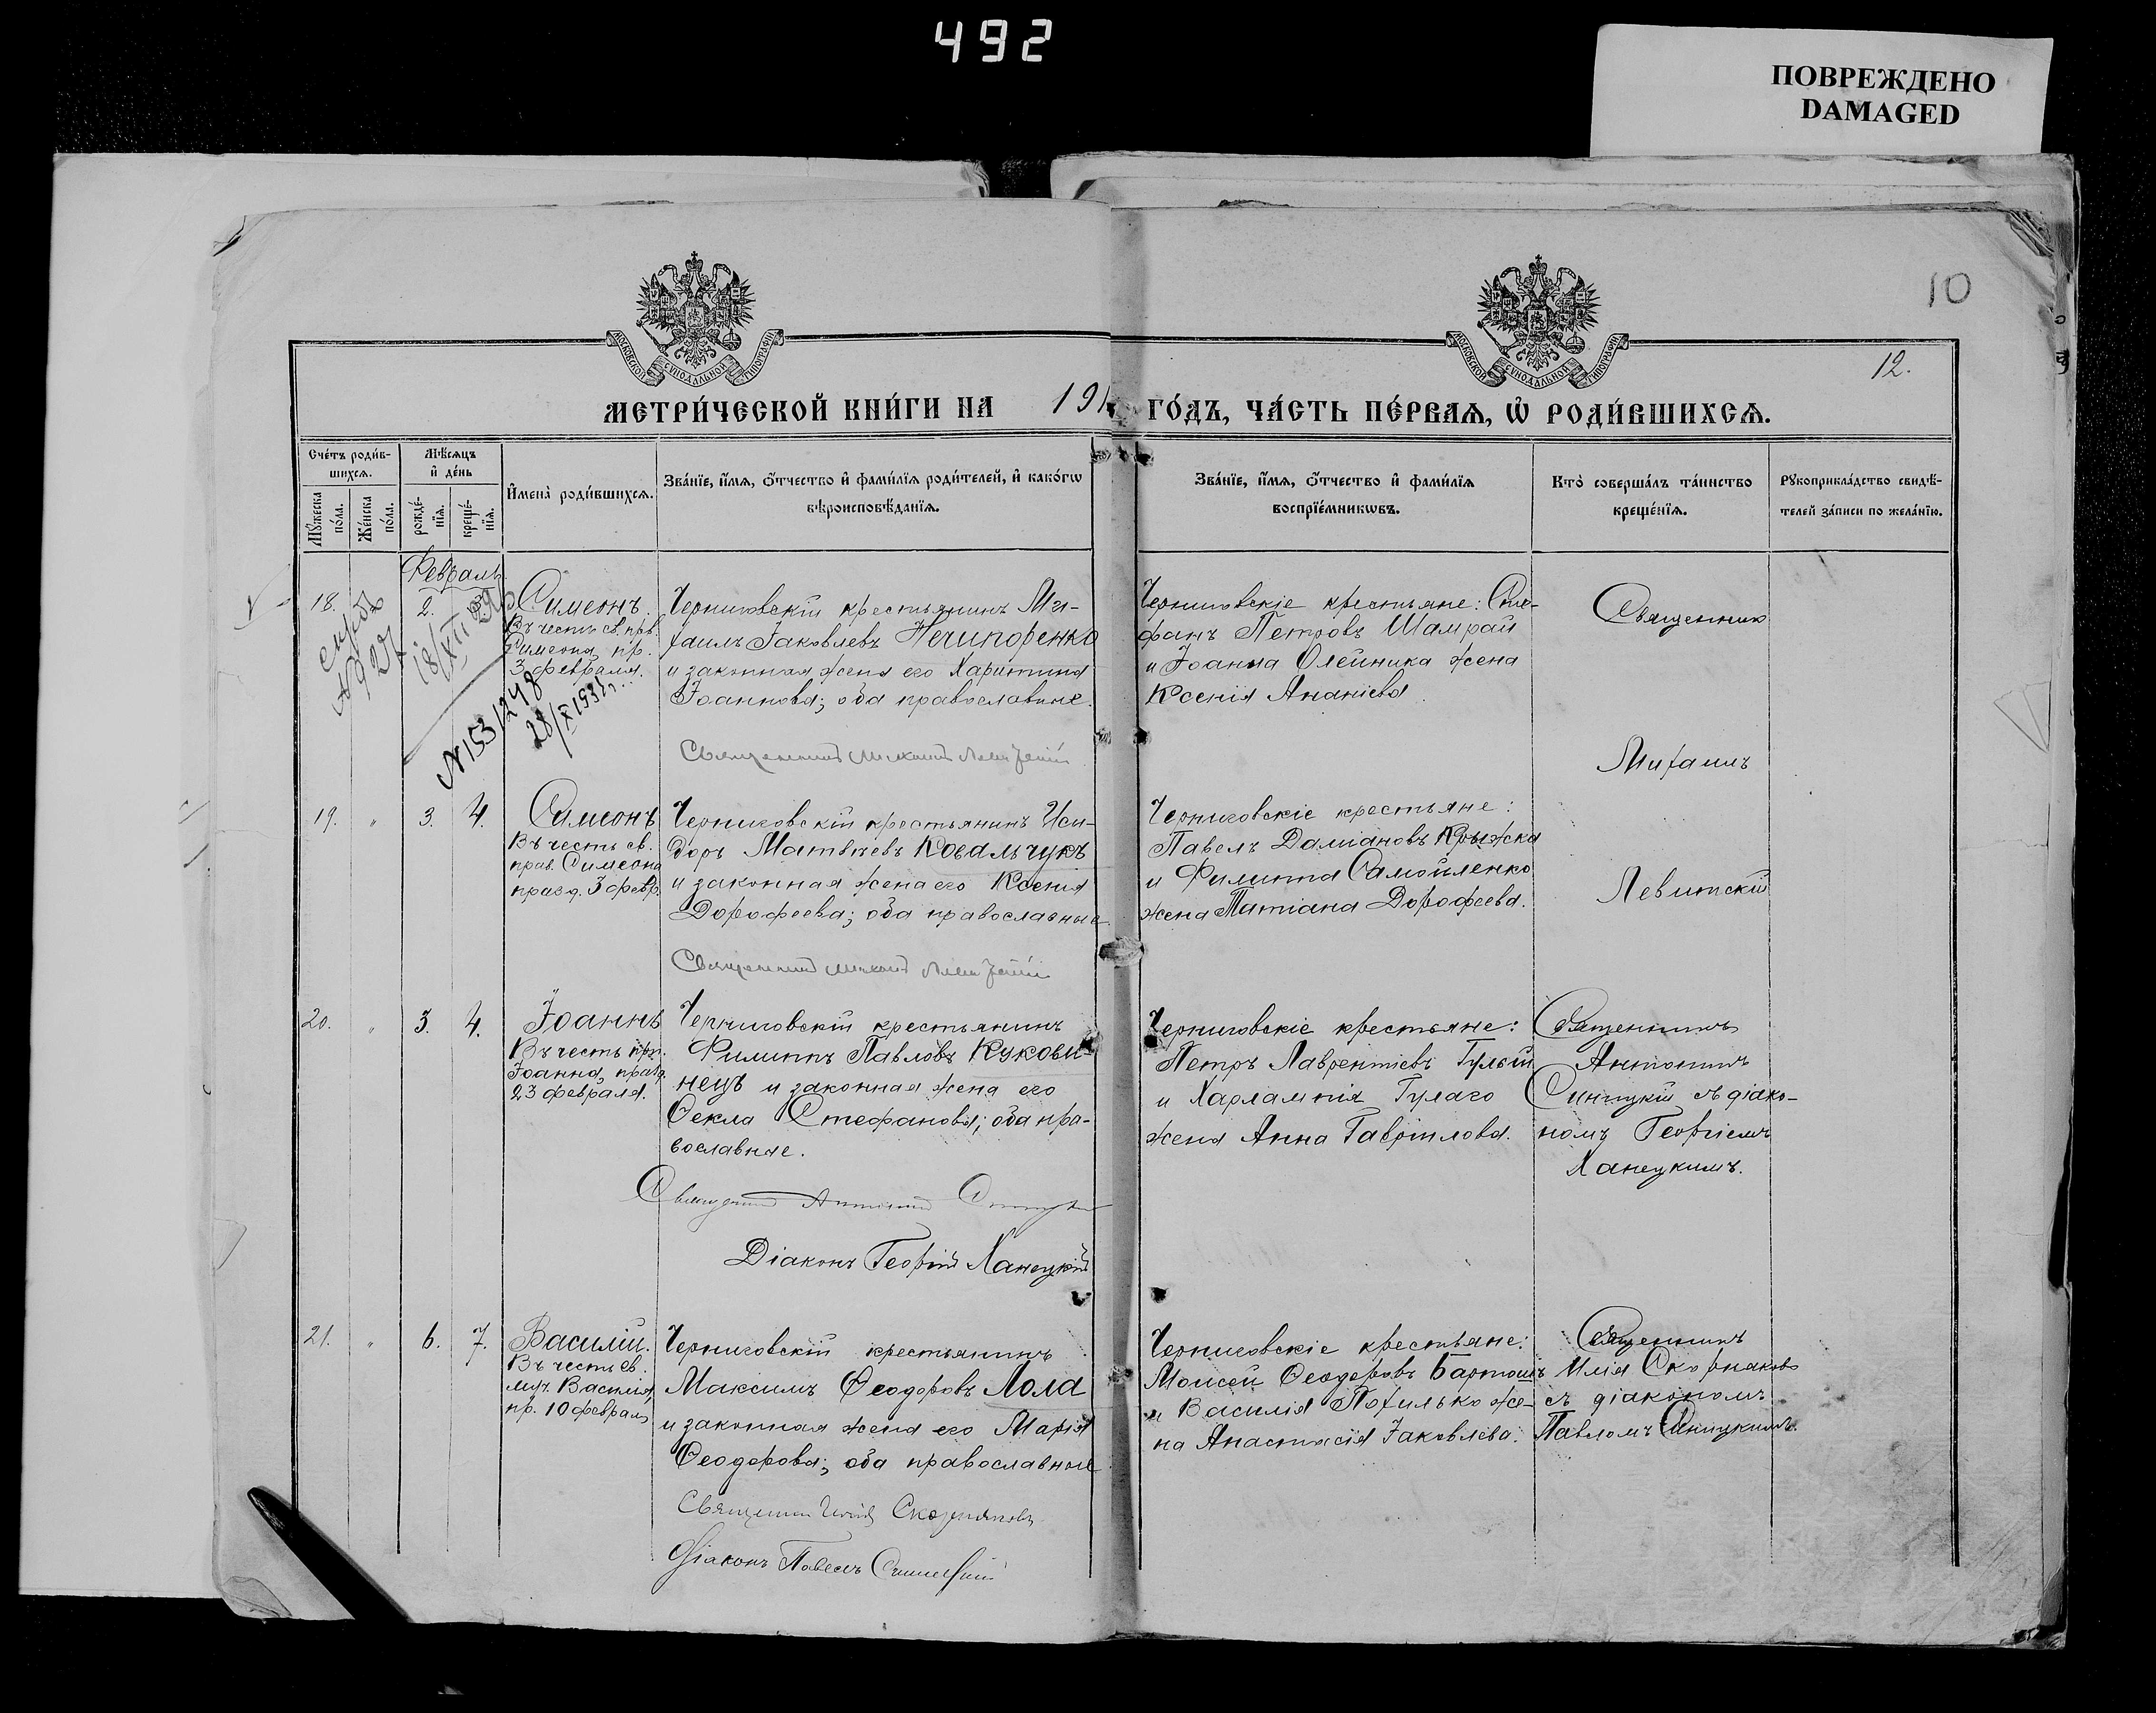 492
ПОВРЕЖДЕНО
DAMAGED
10
12.
МОСКОВСКОЙ СѴНОДАЛЬНОЙ ТИПОГРАФІИ
МОСКОВСКОЙ СѴНОДАЛЬНОЙ ТИПОГРАФІИ
МЕТРИ́ЧЕСКОЙ КНИ́ГИ НА 191
ГО́ДЪ, ЧА́СТЬ ПЕ́РВАѦ, Ѡ҆ РОДИ́ВШИХСѦ.
Сче́тъ роди́в-
шихсѧ.
Мꙋ́жеска по́ла.
Же́нска по́ла.
Мѣ́сѧцъ
и҆ де́нь
рожде́-
нїѧ.
креще́-
нїѧ.
И҆мена̀ роди́вшихсѧ.
Зва́нїе, и҆́мѧ, ѻ҆́тчество и҆ фами́лїѧ роди́телей, и҆ како́гѡ
вѣроисповѣ́данїѧ.
Зва́нїе, и҆́мѧ, ѻ҆́тчество и҆ фами́лїѧ
воспрїе́мникѡвъ.
Кто̀ соверша́лъ та́инство
креще́нїѧ.
Рꙋкоприкла́дство свидѣ́-
телей за́писи по жела́нїю.
Февраль
18.
2.
Симеонъ.
Въ честь св. прв.
Симеона, пр.
3 февраля.
N153/248
28/X 193
Черниговскій крестьянинъ Ми-
хаилъ Іаковлевъ Нечипоренко
и законная жена его Харитина
Іоаннова; оба православные.
Священникъ Михаилъ Левитскій
Черниговскіе крестьяне: Сте-
фанъ Петровъ Шамрай
и Іоанна Олейника жена
Ксенія Ананіева.
Священникъ
Михаилъ
Левитскій
19. " 3. 4.
Симеонъ
Въ честь св.
прав. Симеона
празд. 3 февр.
Черниговскій крестьянинъ Иси-
доръ Матвѣевъ Ковальчукъ
и законная жена его Ксенія
Дорофеева; оба православные
Священникъ Михаилъ Левитскій
Черниговскіе крестьяне:
Павелъ Даміановъ Крыжка
и Филиппа Самойленко
жена Татіана Дорофеева.
20. " 3. 4.
Іоаннъ
Въ честь прп.
Іоанна, празд.
23 февраля.
Черниговскій крестьянинъ
Филиппъ Павловъ Кукови-
нецъ и законная жена его
Ѳекла Стефанова; оба пра-
вославные.
Священникъ Антоній
Діаконъ Георгій Ханецкій
Черниговскіе крестьяне:
Петръ Лаврентіевъ Гулый
и Харлампія Гулаго
жена Анна Гавріилова.
Священникъ
Антоній
Синицкій съ діако-
номъ Георгіемъ
Ханецкимъ.
21. " 6. 7.
Василій.
Въ честь св.
муч. Василія,
пр. 10 февраля
Черниговскій крестьянинъ
Максимъ Ѳеодоровъ Лола
и законная жена его Марія
Ѳеодорова; оба православные
Священникъ Илія Скорняковъ
Діаконъ Павелъ Синицкій
Черниговскіе крестьяне:
Моисей Ѳеодоровъ Бартошъ
и Василія Похилько же-
на Анастасія Іаковлева.
Священникъ
Илія Скорняковъ
съ діакономъ
Павломъ Синицкимъ.